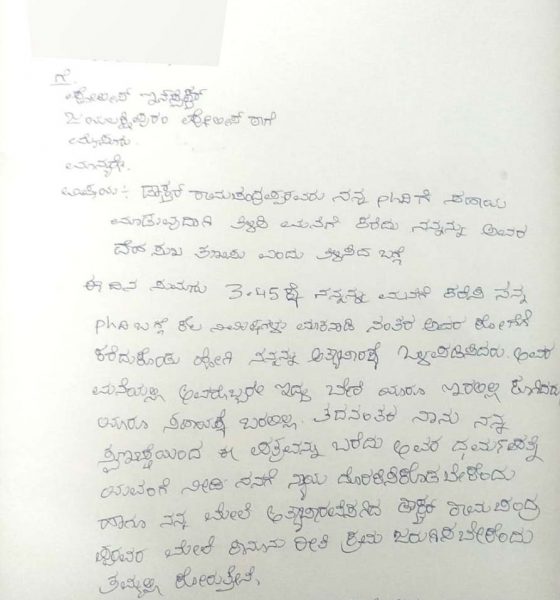 ಗೆ
ಪೋಲೀಸ್ ಇನ್‌ಸ್ಪೆಕ್ಟರ್
ಜಯಲಕ್ಷ್ಮೀಪುರಂ ಪೋಲೀಸ್ ಠಾಣೆ
ಮೈಸೂರು.
ಮಾನ್ಯರೇ.
ವಿಷಯ :- ಡಾಕ್ಟರ್ ರಾಮಚಂದ್ರಪ್ಪರವರು ನನ್ನ phd ಗೆ ಸಹಾಯ
ಮಾಡುವುದಾಗಿ ತಿಳಿಸಿ ಮನೆಗೆ ಕರೆದು ನನ್ನನ್ನು ಅವರ
ದೇಹ ಸುಖ ಎಂದು ತಿಳಿಸಿದ ಬಗ್ಗೆ
ಈ ದಿನ ಸುಮಾರು 3.45 ಕ್ಕೆ ನನ್ನನ್ನು ಮನೆಗೆ ಕರೆಸಿ ನನ್ನ
phd ಬಗ್ಗೆ ಕೆಲ ನಿಮಿಷಗಳು ಮಾತನಾಡಿ ನಂತರ ಅವರ ರೂಂಗೆ
ಕರೆದುಕೊಂಡು ಹೋಗಿ ನನ್ನನ್ನು ಅತ್ಯಾಚಾರಕ್ಕೆ ಒಳಪಡಿಸಿದರು. ಅವರ
ಮನೆಯಲ್ಲಿ ಅವರೊಬ್ಬರೇ ಇದ್ದು ಬೇರೆ ಯಾರೂ ಇರಲಿಲ್ಲ ಕೂಗಿದರು
ಯಾರೂ ಸಹಾಯಕ್ಕೆ ಬರಲಿಲ್ಲ. ತದನಂತರ ನಾನು ನನ್ನ
ಸ್ವಇಚ್ಛೆಯಿಂದ ಈ ಪತ್ರವನ್ನು ಬರೆದು ಅವರ ಧರ್ಮಪತ್ನಿ
ನೀಡಿ ನನಗೆ ನ್ಯಾಯ ದೊರಕಿಸಿಕೊಡಬೇಕೆಂದು
ಹಾಗೂ ನನ್ನ ಮೇಲೆ ಅತ್ಯಾಚಾರವೆಸಗಿದ ಡಾಕ್ಟರ್ ರಾಮಚಂದ್ರ
ಪ್ಪರವರ ಮೇಲೆ ಕಾನೂನು ರೀತಿ ಕ್ರಮ ಜರುಗಿಸಬೇಕೆಂದು
ತಮ್ಮಲ್ಲಿ ಕೋರುತ್ತೇನೆ.